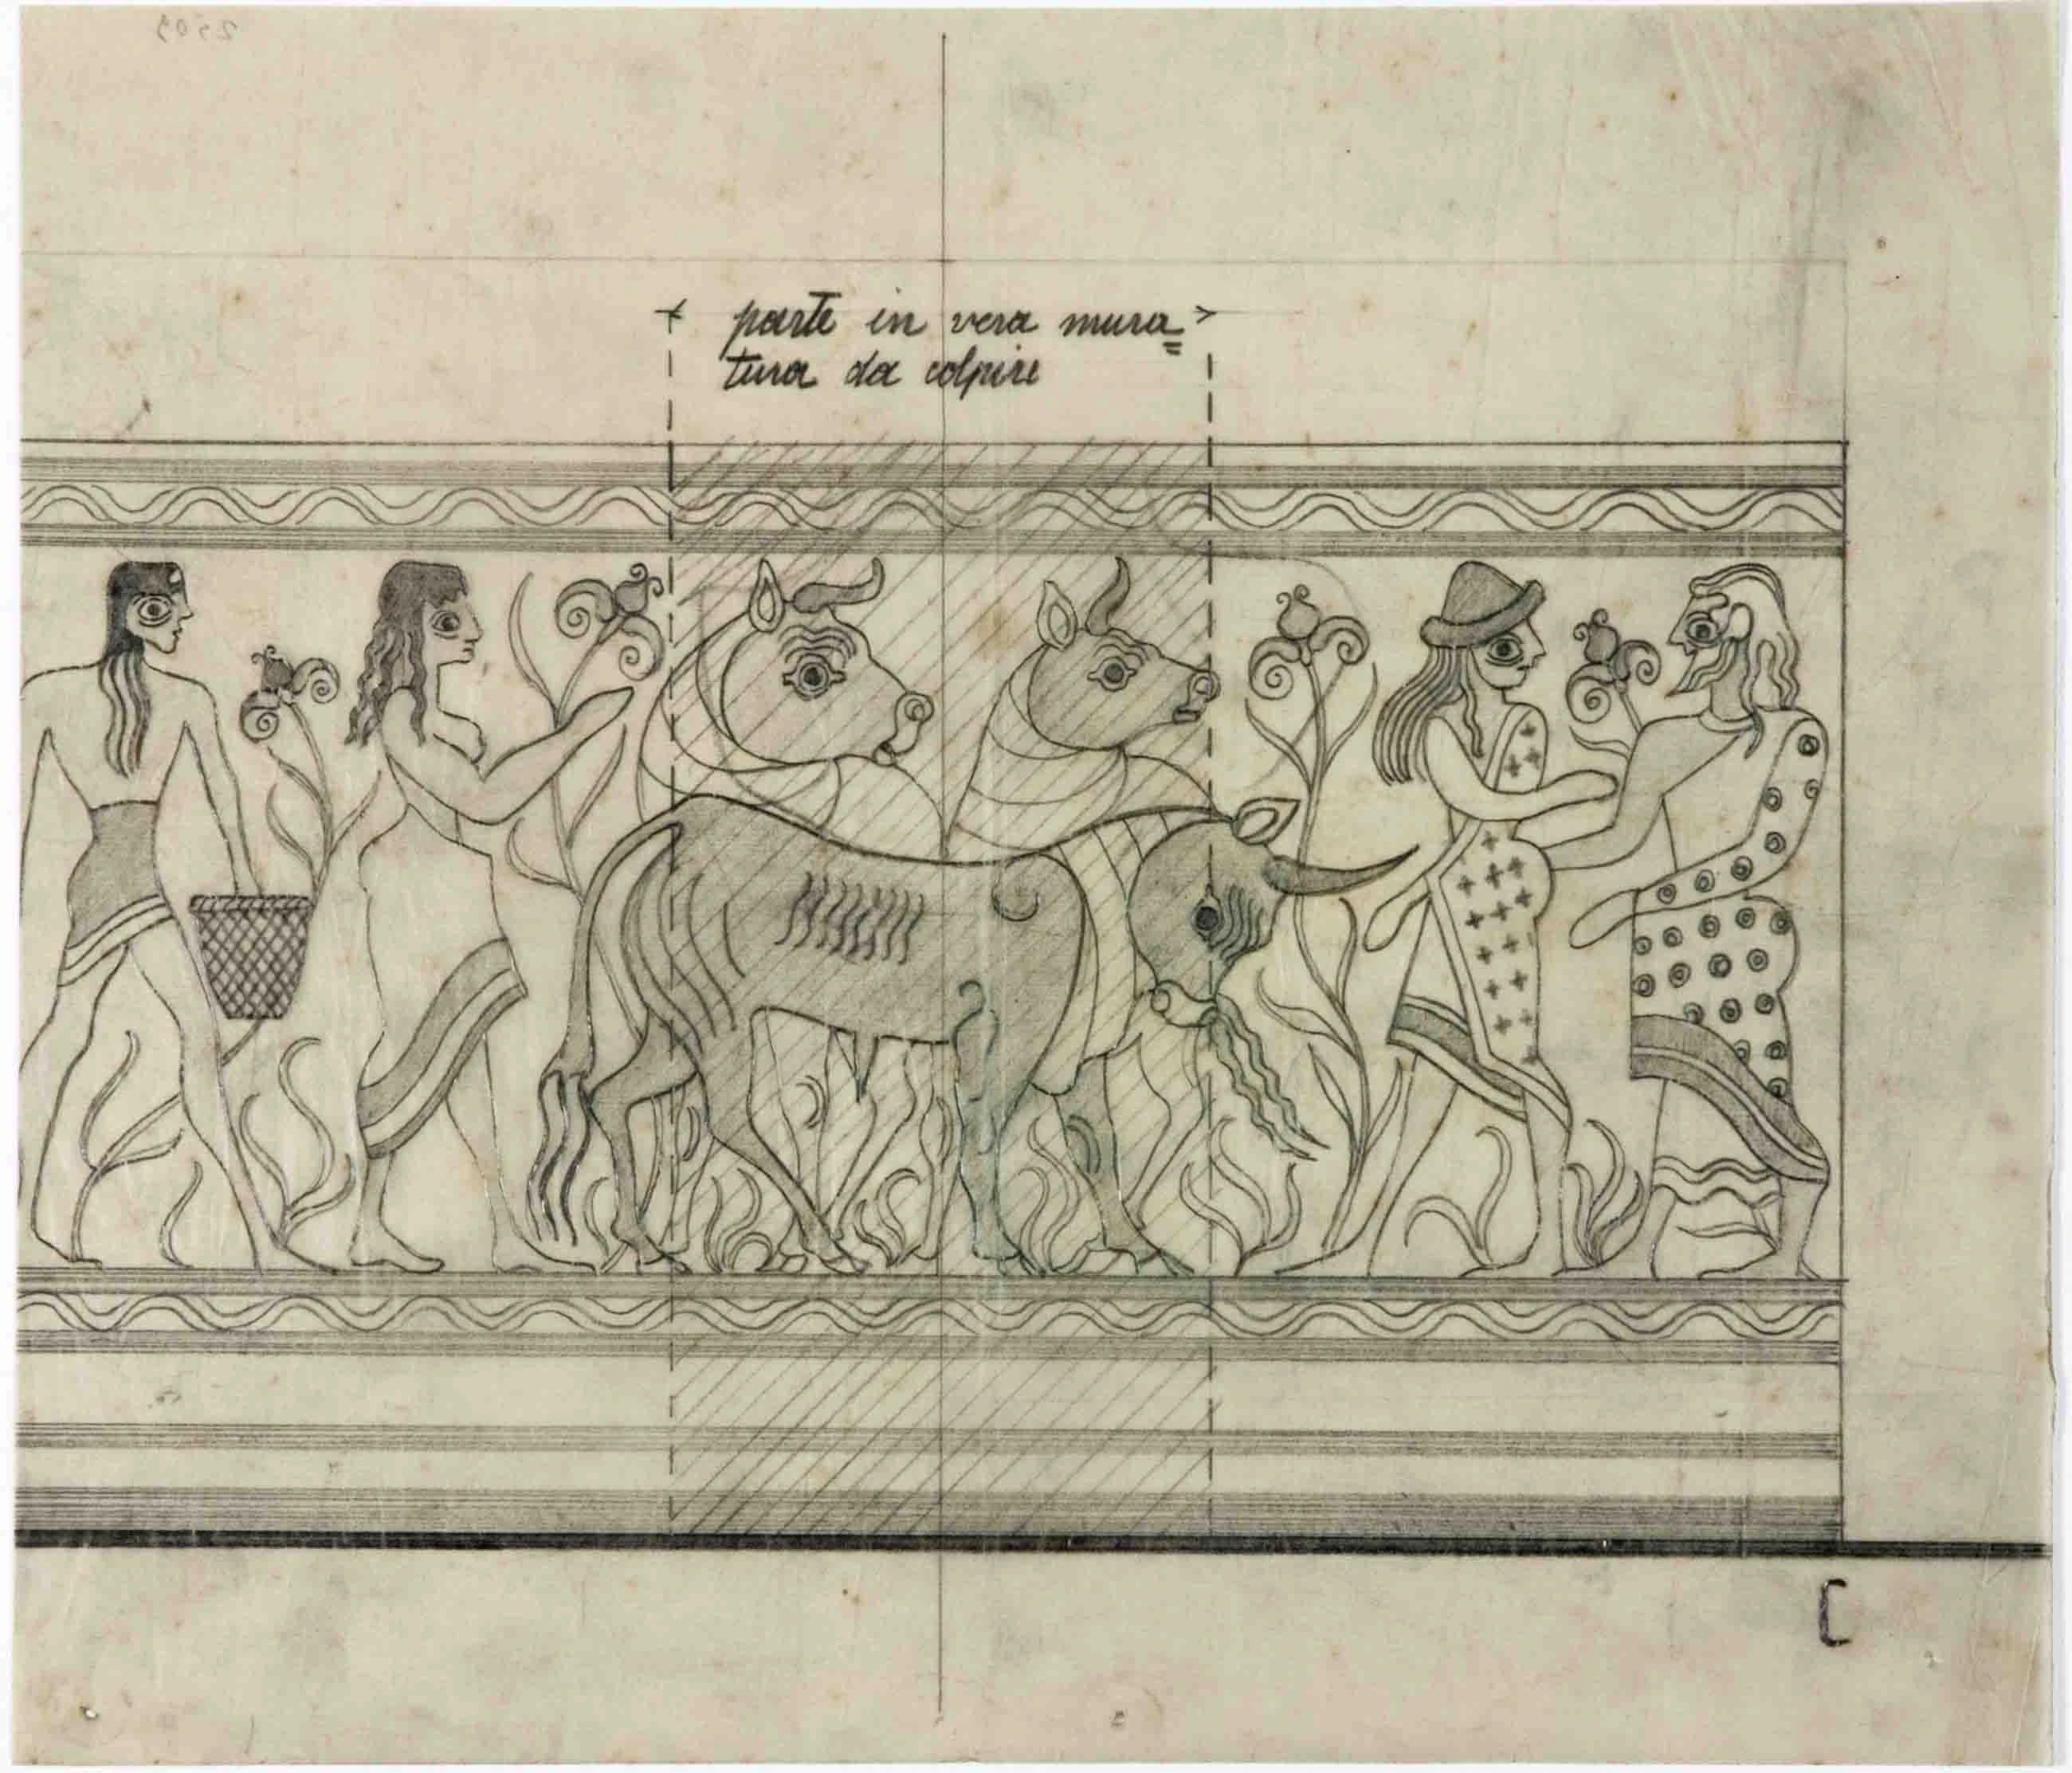 2503
parte in vera mura=
tura da colpire
C